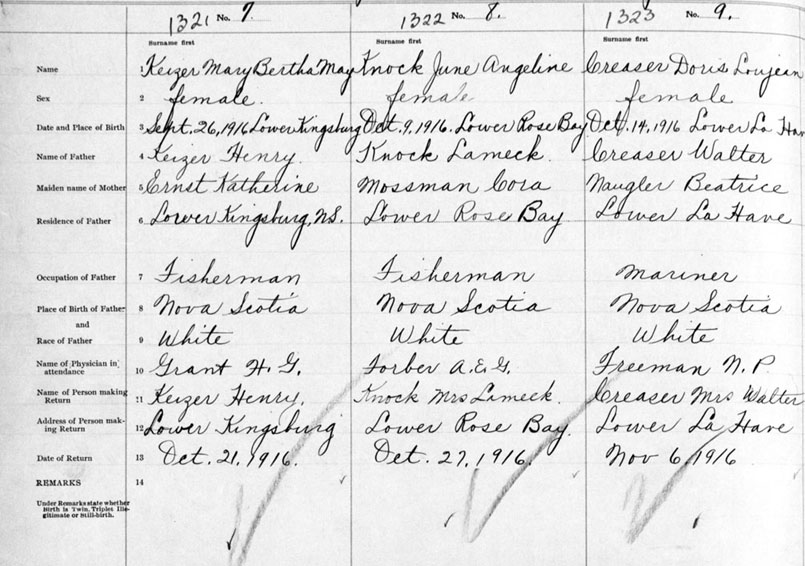 1321 No. 7. 1322 No. 8. 1323 No. 9.
Surname first Surname first Surname first
Name 1 Keizer Mary Bertha May Knock June Angeline Creaser Doris Loujean
Sex 2 female. female female
Date and Place of Birth 3 Sept. 26, 1916 Lower Kingsburg Oct. 9, 1916. Lower Rose Bay Oct. 14, 1916 Lower La Hav
Name of Father 4 Keizer Henry. Knock Lameck. Creaser Walter
Maiden name of Mother 5 Ernst Katherine Mossman Cora Naugler Beatrice
Residence of Father 6 Lower Kingsburg, N.S. Lower Rose Bay Lower La Have
Occupation of Father 7 Fisherman Fisherman Mariner
Place of Birth of Father 8 Nova Scotia Nova Scotia Nova Scotia
and
Race of Father 9 White White White
Name of Physician in attendance 10 Grant H. G. Forber A. E. G. Freeman N. P.
Name of Person making Return 11 Keizer Henry. Knock Mrs Lameck. Creaser Mrs Walter
Address of Person mak-
ing Return 12 Lower Kingsburg Lower Rose Bay. Lower La Have
Date of Return 13 Oct. 21, 1916. Oct. 27, 1916. Nov 6, 1916
REMARKS 14
Under Remarks state whether
Birth is Twin, Triplet Ille-
gitimate or Still-birth.